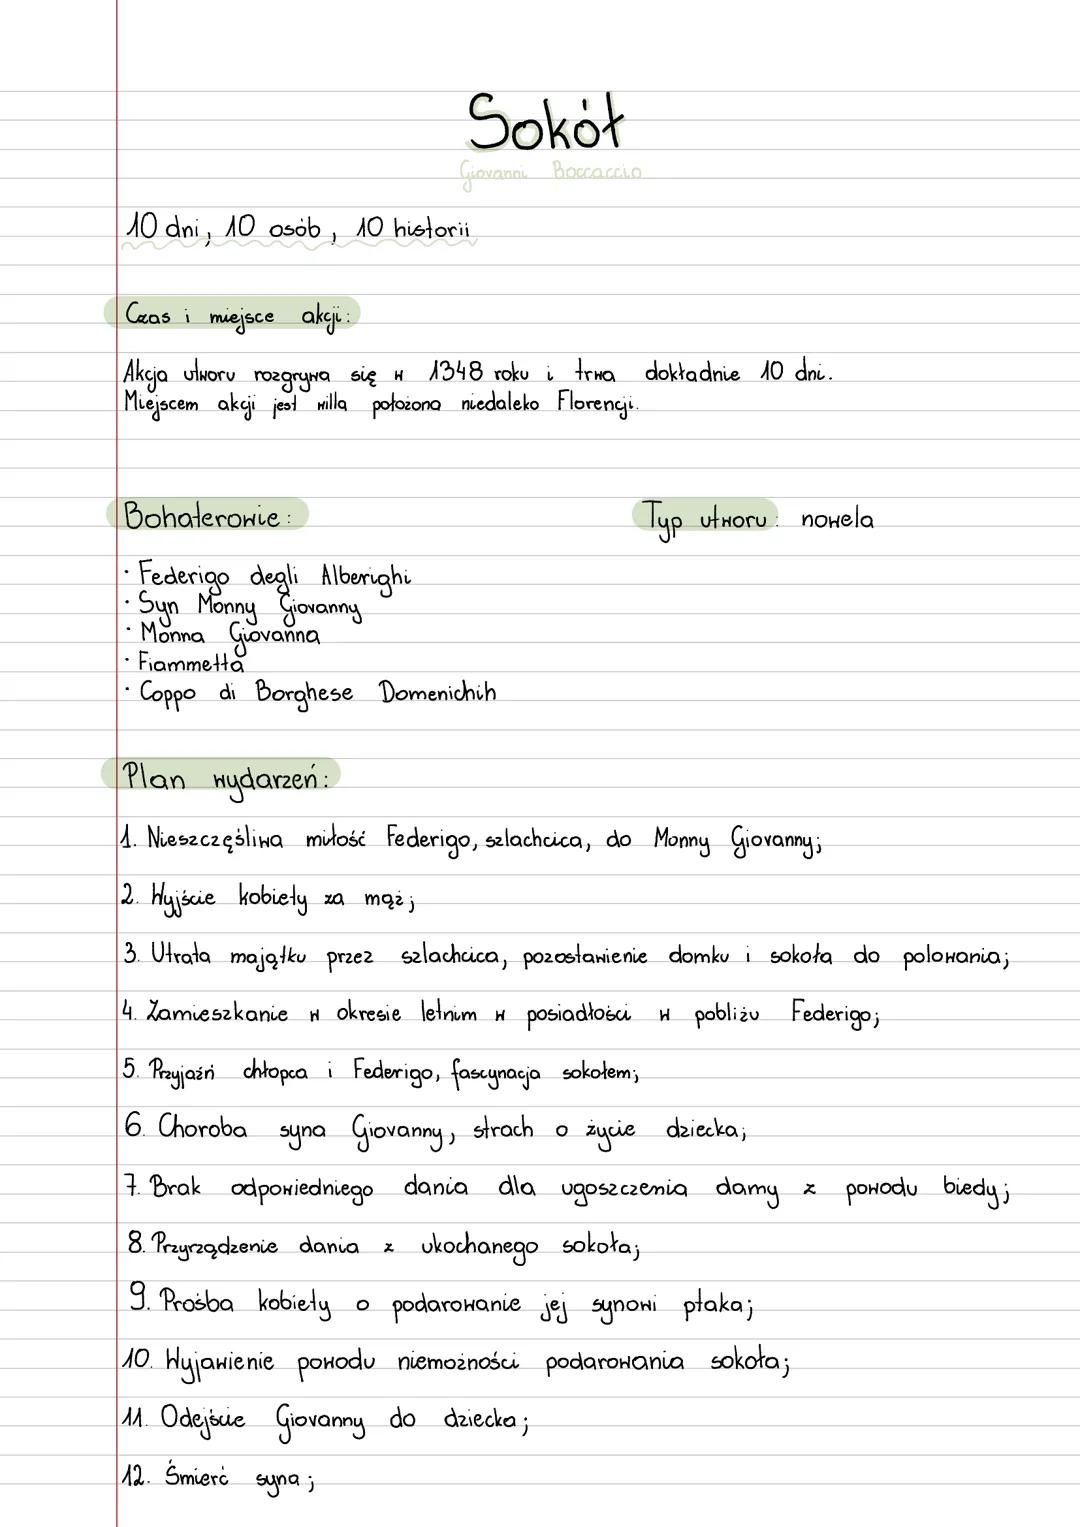 Sokół
Giovanni Boccaccio
10 dni, 10 osób, 10 historii
Czas i miejsce akcji:
Akcja utworu rozgrywa się w 1348 roku i trwa dokładnie 10 dni.
Miejscem akcji jest willa położona niedaleko Florencji.
Bohaterowie:
Typ utworu: nowela
· Federigo degli Alberighi
· Syn Monny Giovanny
· Monna Giovanna
· Fiammetta
· Coppo di Borghese Domenichih
Plan wydarzeń:
1. Nieszczęśliwa miłość Federigo, szlachcica, do Monny Giovanny;
2. Wyjście kobiety za mąż;
3. Utrata majątku przez szlachcica, pozostawienie domku i sokoła do polowania;
4. Zamieszkanie w okresie letnim w posiadłości w pobliżu Federigo;
5. Przyjaźń chłopca i Federigo, fascynacja sokołem;
6. Choroba syna Giovanny, strach o życie dziecka;
7. Brak odpowiedniego dania dla ugoszczenia damy z powodu biedy;
8. Przyrządzenie dania z ukochanego sokoła;
9. Prośba kobiety o podarowanie jej synowi ptaka;
10. Wyjawienie powodu niemożności podarowania sokoła;
11. Odejście Giovanny do dziecka;
12. Śmierć syna;